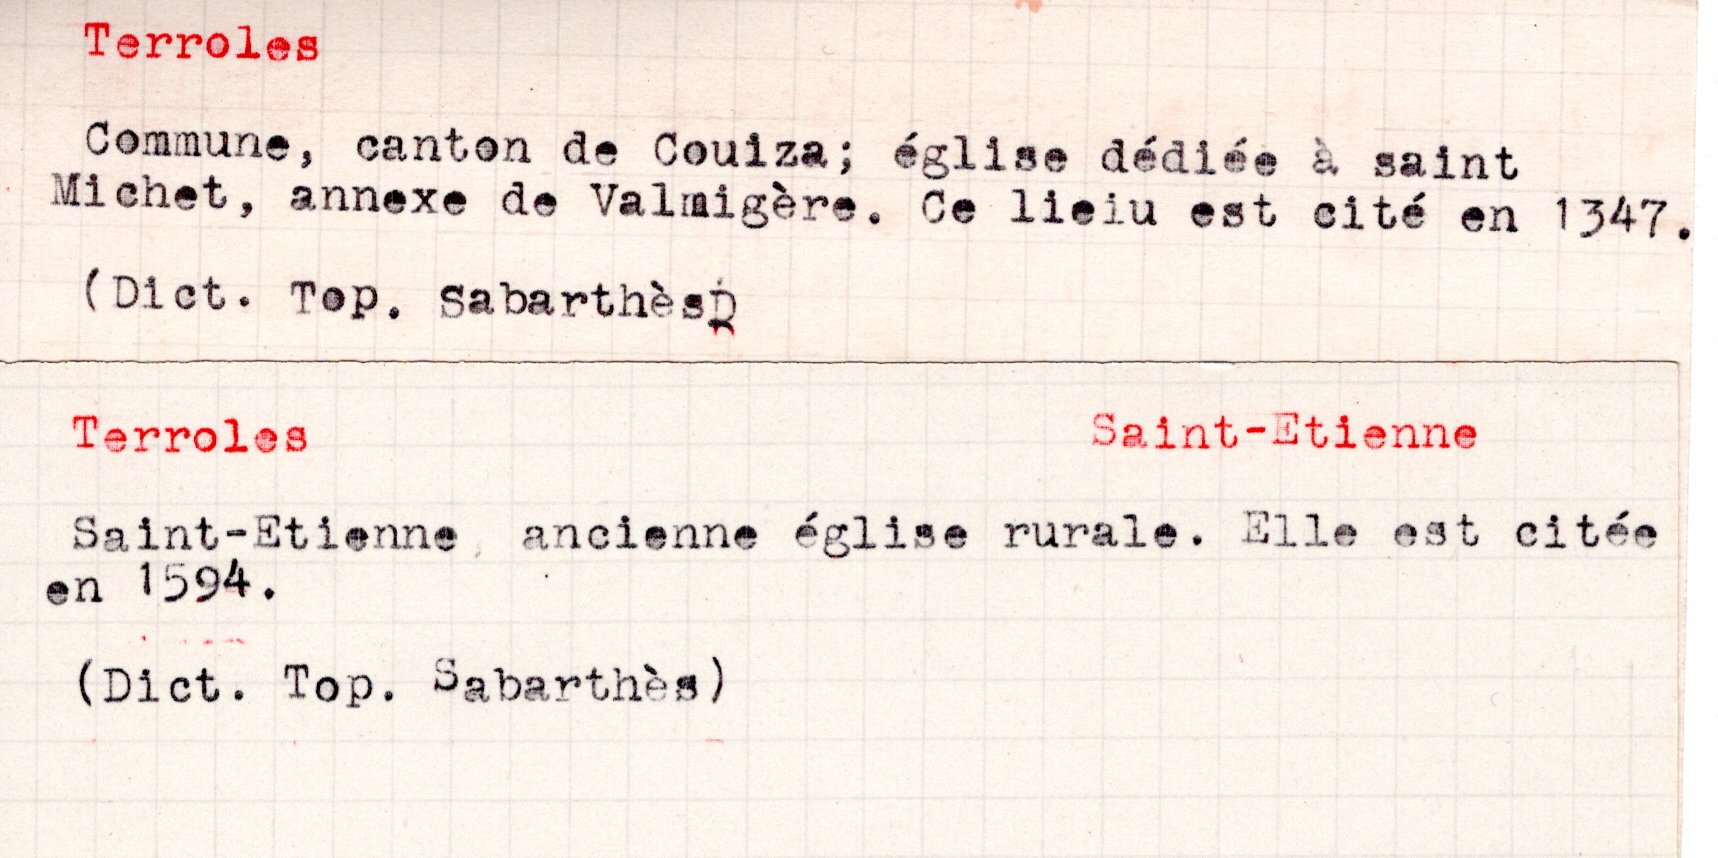 Terroles
Commune, canton de Couiza; église dédiée à saint
Michet, annexe de Valmigère. Ce lieiu est cité en 1347.
(Dict. Top. Sabarthès)
Terroles Saint-Etienne
Saint-Etienne, ancienne église rurale. Elle est citée
en 1594.
(Dict. Top. Sabarthès)